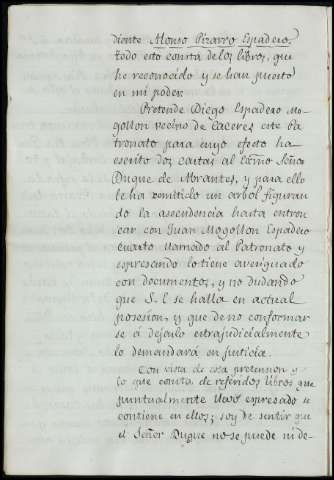 diente Alonso Pizarro Espadero,
todo esto consta de los libros, que
he reconocido y se han puesto
en mi poder.
Pretende Diego Espadero Mo-
gollon vecino de Caceres este Pa
tronato para cuyo efecto ha
escrito dos cartas al Exmo Señor
Duque de Abrantes, y para ello
le ha remitido un arbol figuran
do la assendencia hasta entron
car con Juan Mogollon Espadero
cuarto llamado al Patronato y
espresando lo tiene averiguado
con documentos, y no dudando
que S. E. se halla en actual
posesion, y que de no conformar
se á dejarlo extrajudicialmente
lo demandará en justicia.
Con vista de esa pretension y
lo que consta de referidos libros que
puntualmente llevo expresado se
contiene en ellos; soy de sentir que
el Señor Duque no se puede ni de-